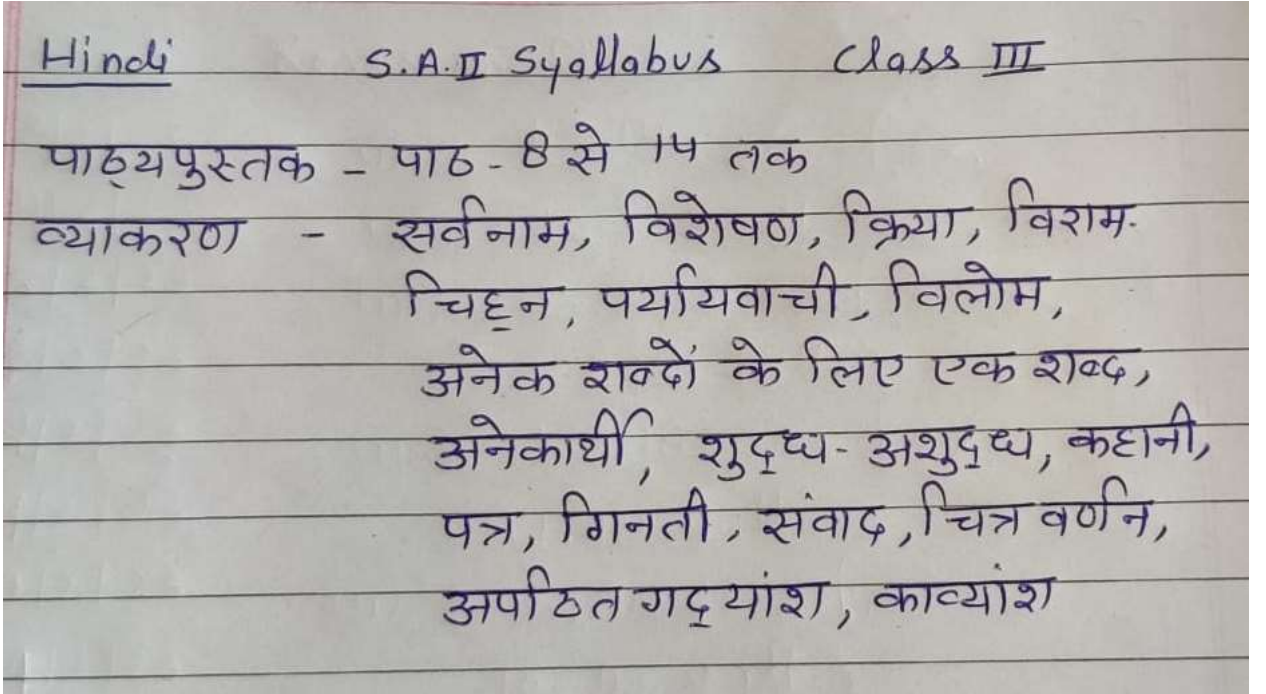 Hindi S.A.II Syallabus Class III
पाठ्यपुस्तक - पाठ - 8 से 14 तक
व्याकरण - सर्वनाम, विशेषण, क्रिया, विराम-
चिह्न, पर्यायवाची, विलोम,
अनेक शब्दों के लिए एक शब्द,
अनेकार्थी, शुद्ध - अशुद्ध, कहानी,
पत्र, गिनती, संवाद, चित्र वर्णन,
अपठित गद्यांश, काव्यांश